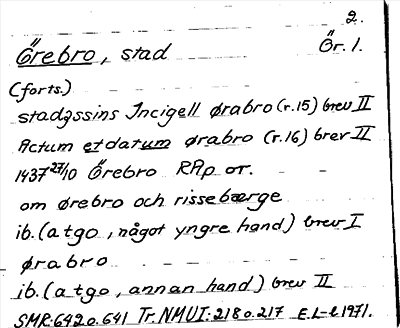 2.
Örebro, stad Ör. 1.
(forts.)
stadzssins Incigell ørabro (r.15) brev II
Actum et datum ørabro (r.16) brev II
1437 27/10 Örebro RAp or. - -
om ørebro och rissebærge
ib. (atgo, något yngre hand) brev I
ørabro - - - -
ib. (atgo, annan hand) brev II
SMR: 642 o. 641 Tr. NMU I: 218 o. 217 E.L-l 1971.